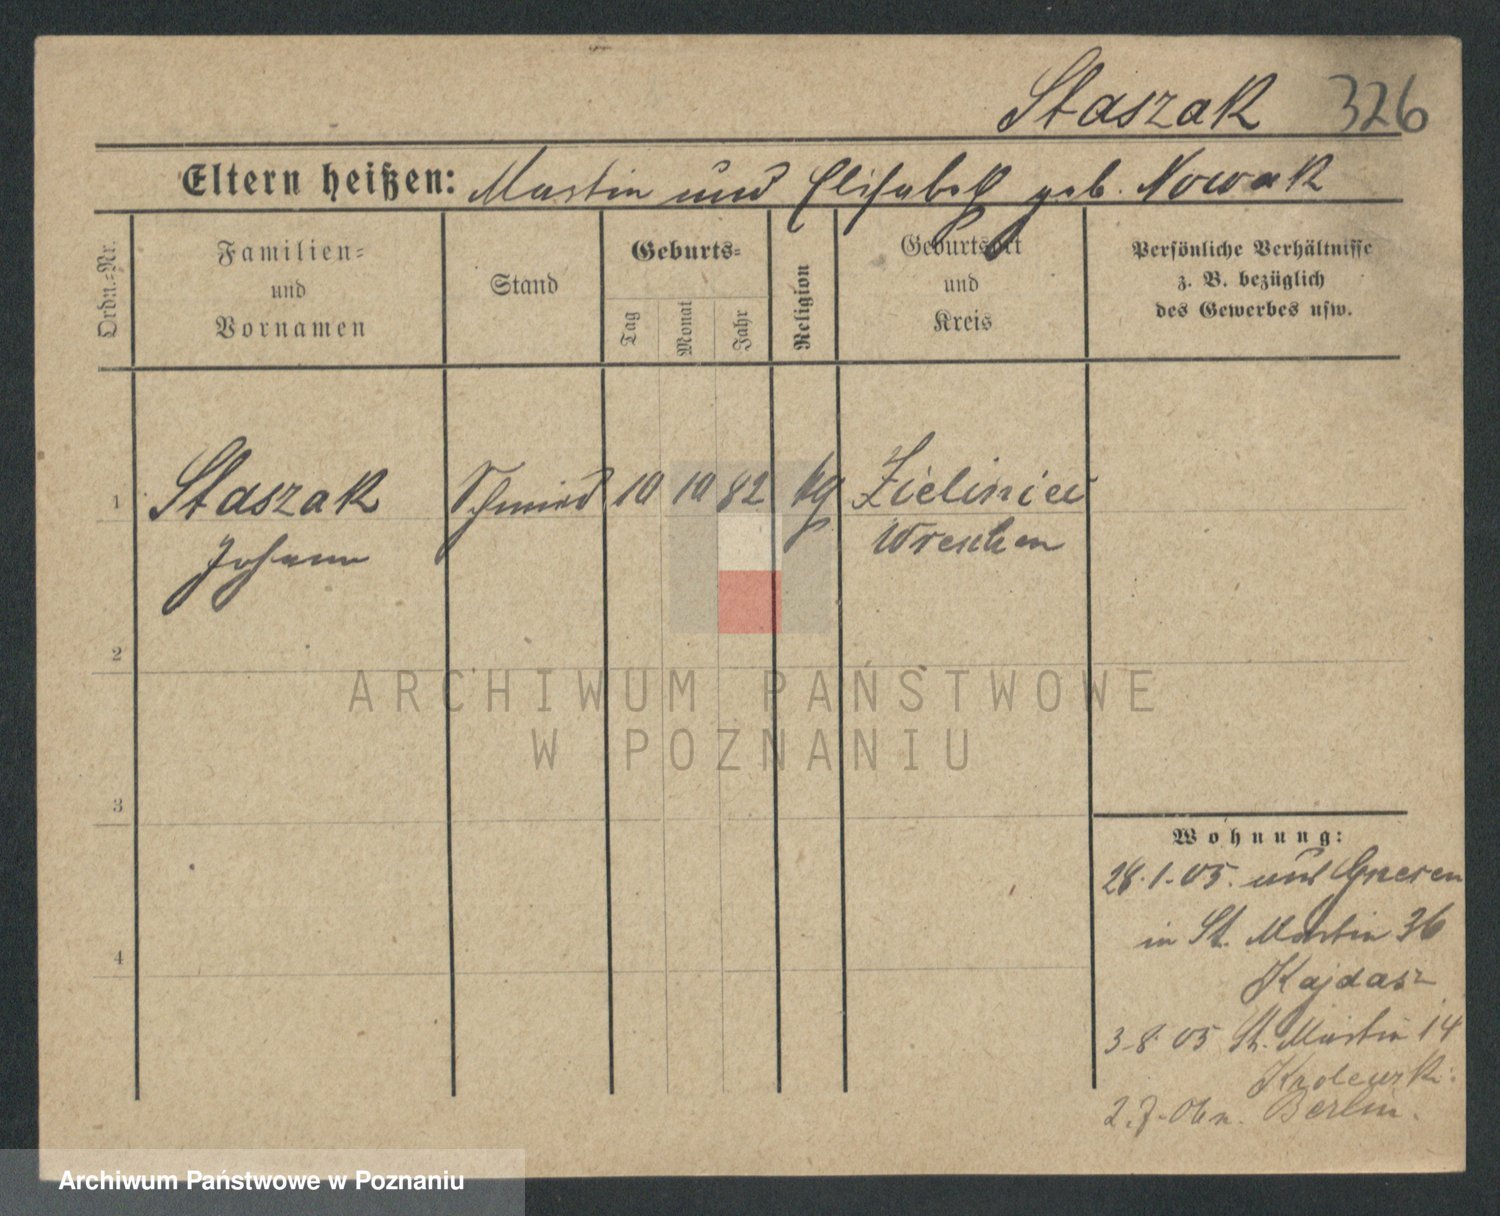 Staszak 326
Eltern heißen: Martin und Elisabeth geb. Nowak
Ordn.=Nr.
Familien=
und
Vornamen
Stand
Geburts=
Tag
Monat
Jahr
Religion
Geburtsort
und
Kreis
Persönliche Verhältnisse
z. B. bezüglich
des Gewerbes usw.
1 Staszak Schmied 10 10 82 kg Zieliniec
Johann Wreschen
2
3
4
Wohnung:
28.1.05. aus Gnesen
in St. Martin 36
Kajdasz
3.8.05 St. Martin 14
2.7.06 n. Berlin.
ARCHIWUM PAŃSTWOWE
W POZNANIU
Archiwum Państwowe w Poznaniu